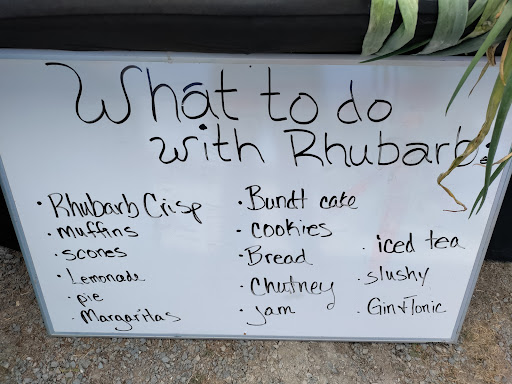 What to do
with Rhubarb:
• Rhubarb Crisp
• Muffins
• scones
• Lemonade
• pie
• Margaritas
• Bundt cake
• cookies
• Bread
• Chutney
• jam
• iced tea
• slushy
• Gin & Tonic